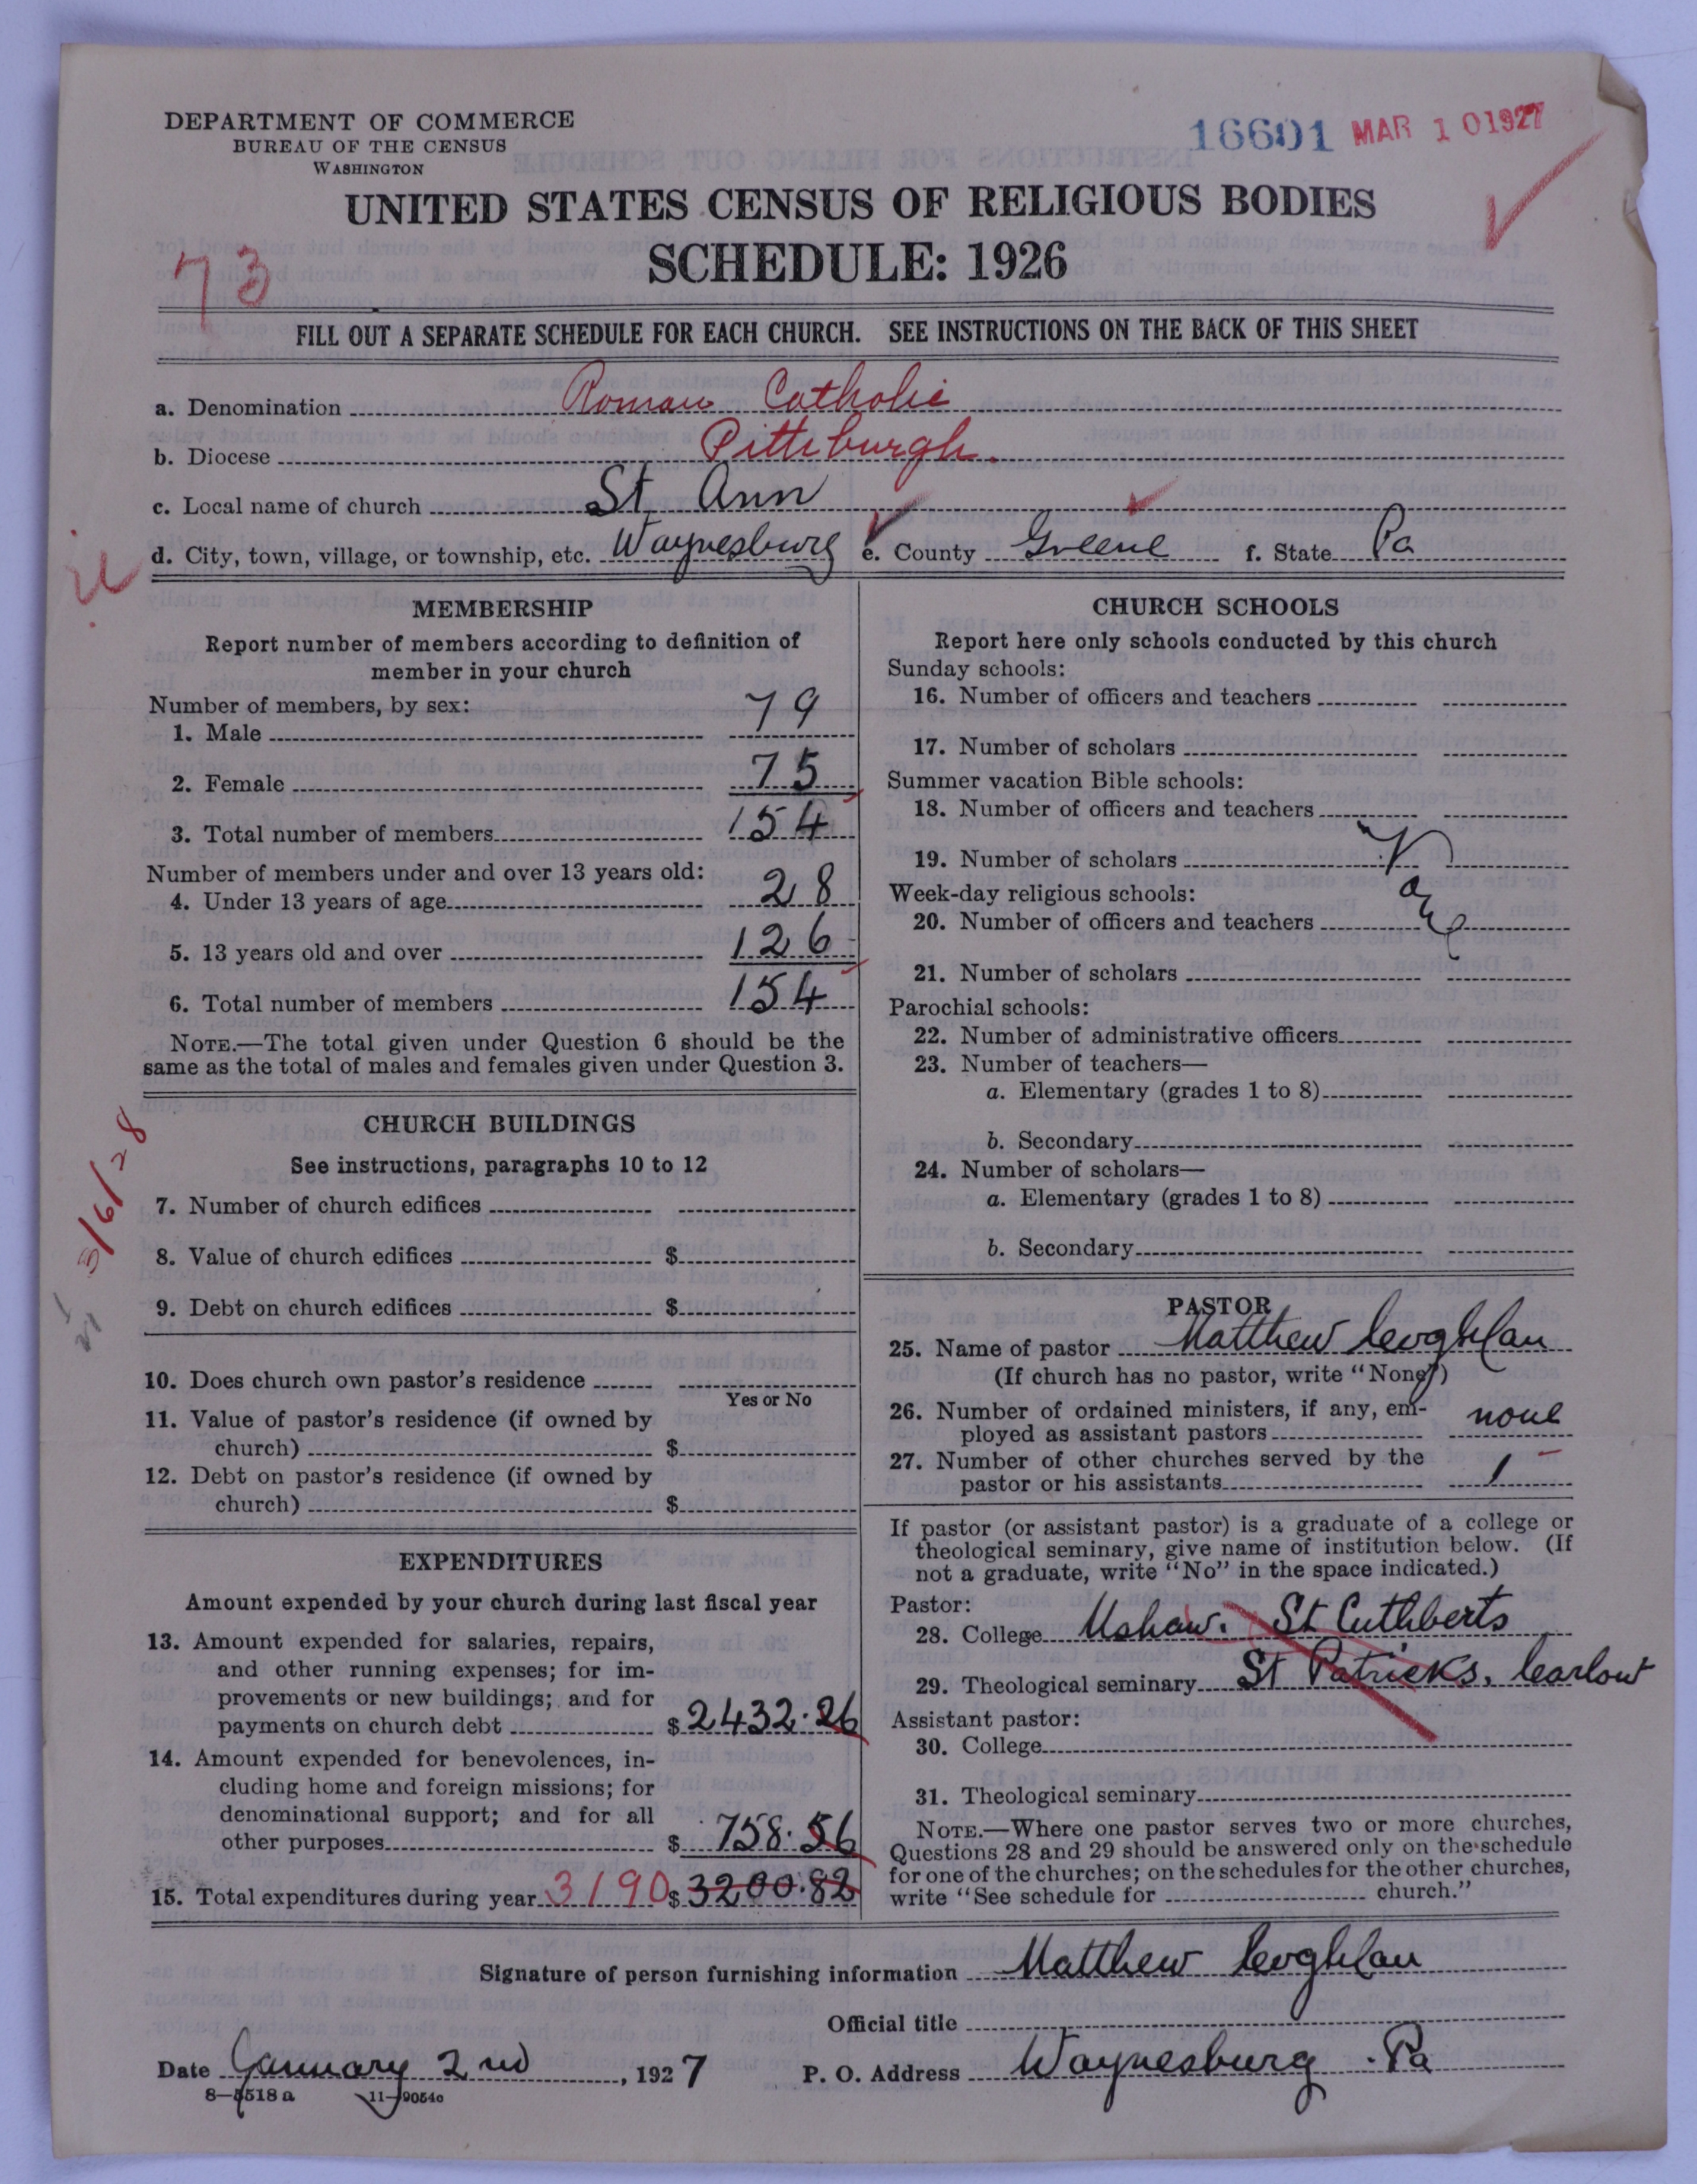 DEPARTMENT OF COMMERCE
BUREAU OF THE CENSUS
WASHINGTON
16601 MAR 10 1927
UNITED STATES CENSUS OF RELIGIOUS BODIES
SCHEDULE: 1926
73
FILL OUT A SEPARATE SCHEDULE FOR EACH CHURCH. SEE INSTRUCTIONS ON THE BACK OF THIS SHEET
a. Denomination Roman Catholic
b. Diocese Pittsburgh.
c. Local name of church St. Ann
d. City, town, village, or township, etc. Waynesburg e. County Greene f. State Pa
MEMBERSHIP
Report number of members according to definition of
member in your church
Number of members, by sex:
1. Male 79
2. Female 75
3. Total number of members 154
Number of members under and over 13 years old:
4. Under 13 years of age 28
5. 13 years old and over 126
6. Total number of members 154
NOTE.—The total given under Question 6 should be the
same as the total of males and females given under Question 3.
CHURCH BUILDINGS
See instructions, paragraphs 10 to 12
3/6/28
7. Number of church edifices
8. Value of church edifices $
9. Debt on church edifices $
10. Does church own pastor's residence
Yes or No
11. Value of pastor's residence (if owned by
church) $
12. Debt on pastor's residence (if owned by
church) $
EXPENDITURES
Amount expended by your church during last fiscal year
13. Amount expended for salaries, repairs,
and other running expenses; for im-
provements or new buildings; and for
payments on church debt $ 2432.26
14. Amount expended for benevolences, in-
cluding home and foreign missions; for
denominational support; and for all
other purposes $ 758.56
15. Total expenditures during year 3190 $ 3200.82
CHURCH SCHOOLS
Report here only schools conducted by this church
Sunday schools:
16. Number of officers and teachers
17. Number of scholars
Summer vacation Bible schools:
18. Number of officers and teachers
19. Number of scholars
Week-day religious schools:
20. Number of officers and teachers
21. Number of scholars
Parochial schools:
22. Number of administrative officers
23. Number of teachers—
a. Elementary (grades 1 to 8)
b. Secondary
24. Number of scholars—
a. Elementary (grades 1 to 8)
b. Secondary
PASTOR
25. Name of pastor Matthew Coghlan
(If church has no pastor, write "None")
26. Number of ordained ministers, if any, em-
ployed as assistant pastors none
27. Number of other churches served by the
pastor or his assistants 1
If pastor (or assistant pastor) is a graduate of a college or
theological seminary, give name of institution below. (If
not a graduate, write "No" in the space indicated.)
Pastor:
28. College Ushaw. St Cuthberts
29. Theological seminary St Patricks, Carlow
Assistant pastor:
30. College
31. Theological seminary
NOTE.—Where one pastor serves two or more churches,
Questions 28 and 29 should be answered only on the schedule
for one of the churches; on the schedules for the other churches,
write "See schedule for church."
Signature of person furnishing information Matthew Coghlan
Official title
Date January 2nd, 1927 P. O. Address Waynesburg. Pa
8—5518 a 11—9054c